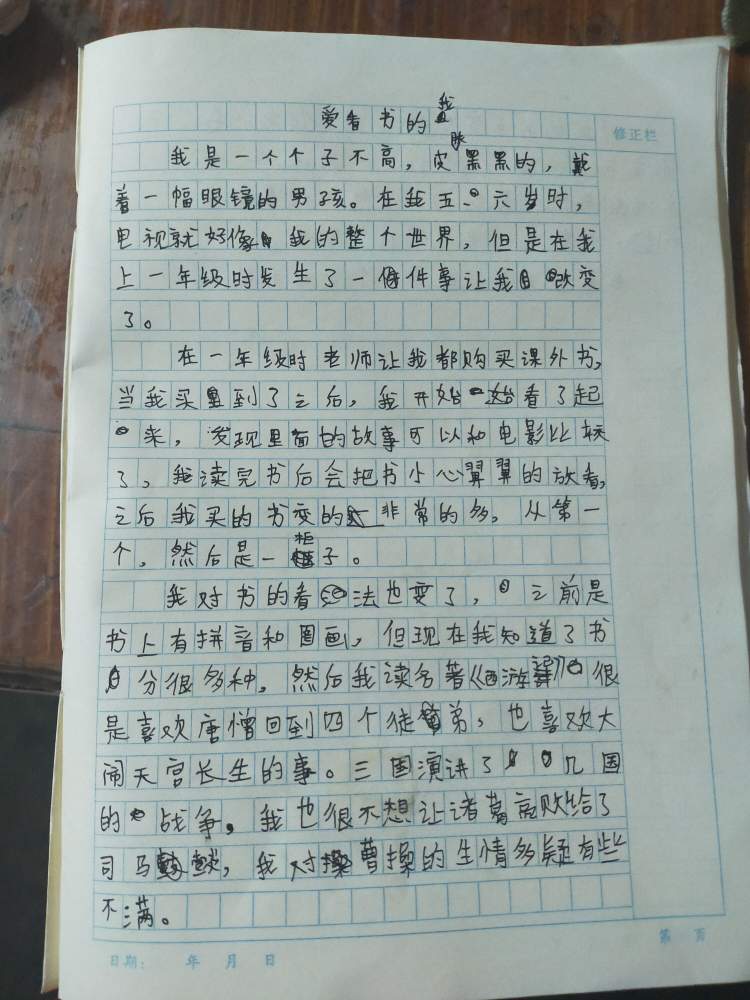 爱看书的我
修正栏
我是一个个子不高，皮肤黑黑的，戴
着一幅眼镜的男孩。在我五、六岁时，
电视就好像我的整个世界，但是在我
上一年级时发生了一件事让我改变
了。
在一年级时老师让我都购买课外书，
当我买到了之后，我开始看了起
来，发现里面的故事可以和电影比较
了，我读完书后会把书小心翼翼的放着，
之后我买的书变的非常的多，从第一
个，然后是一柜子。
我对书的看法也变了，之前是
书上有拼音和图画，但现在我知道了书
分很多种，然后我读名著《西游记》很
是喜欢唐僧回到四个徒弟，也喜欢大
闹天宫长生的事。三国演讲了几国
的战争，我也很不想让诸葛亮败给了
司马懿，我对曹操的生情多疑有些
不满。
日期： 年 月 日
第 页